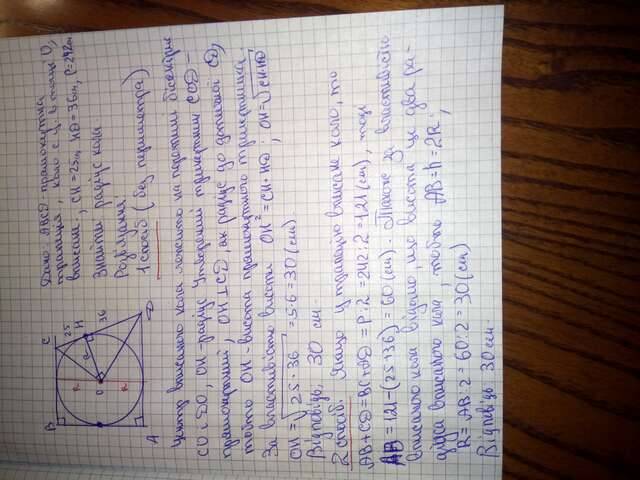 B
C
25
H
36
R
R
O
R
A
D
Дано: ABCD - прямокутна
трапеція, коло с ц. в точці O,
вписане, CH = 25см, HD = 36см, P = 242см
Знайти радіус кола
Розв'язання:
1 спосіб (без периметра)
Центр вписаного кола лежить на перетині бісектрис
CO і DO, OH - радіус. Утворений трикутник COD -
прямокутний, OH ⊥ CD, як радіус до дотичної CD,
тобто OH - висота прямокутного трикутника
За властивістю висоти OH² = CH · HD; OH = √CH·HD
OH = √25 · 36 = 5·6 = 30 (см).
Відповідь: 30 см.
2 спосіб. Якщо у трапецію вписане коло, то
AB + CD = BC + AD = P : 2 = 242 : 2 = 121 (см), тоді
AB = 121 - (25 + 36) = 60 (см). Також за властивістю
вписаного кола відомо, що висота це два ра-
діуса вписаного кола, тобто AB = h = 2R;
R = AB : 2 = 60 : 2 = 30 (см)
Відповідь: 30 см.